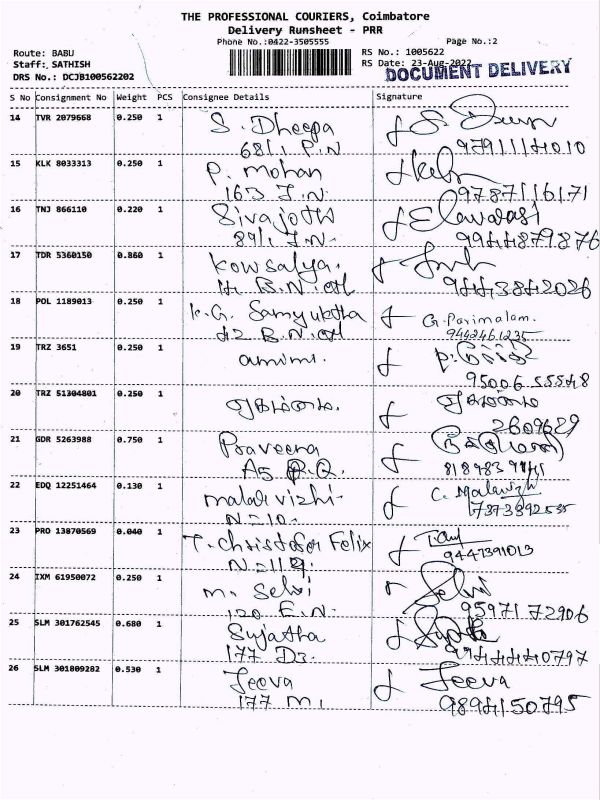 THE PROFESSIONAL COURIERS, Coimbatore
Delivery Runsheet - PRR
Phone No.:0422-3505555 Page No.:2
Route: BABU RS No.: 1005622
Staff: SATHISH RS Date: 23-Aug-2022
DRS No.: DCJB100562202 DOCUMENT DELIVERY
S No Consignment No Weight PCS Consignee Details Signature
14 TVR 2079668 0.250 1 S. Dheepa
68/1 P.N
15 KLK 8033313 0.250 1 P. mohan
163 J.N. 9787116171
16 TNJ 866110 0.220 1 Sivajothi
89/1 J.N. 9944879876
17 TDR 5360150 0.860 1 Kowsalya.
B.N. 9443842026
18 POL 1189013 0.250 1 K.G. Samyuktha G. Parimalam.
42 B.N. 9442461235
19 TRZ 3651 0.250 1
95006 55548
20 TRZ 51304801 0.250 1
2609629
21 GDR 5263988 0.750 1 Praveena
A5
22 EDQ 12251464 0.130 1 malar vizhi- C. Malarvizhi
N=10.
23 PRO 13870569 0.040 1 T. Christofer Felix
N=119. 9447391013
24 IXM 61950072 0.250 1 m. Selvi Selvi
120 F.N. 95971 72906
25 SLM 301762545 0.680 1 Sujatha
177 D3. 9944440797
26 SLM 301809282 0.530 1 Jeeva Jeeva
177 M. 9894150795